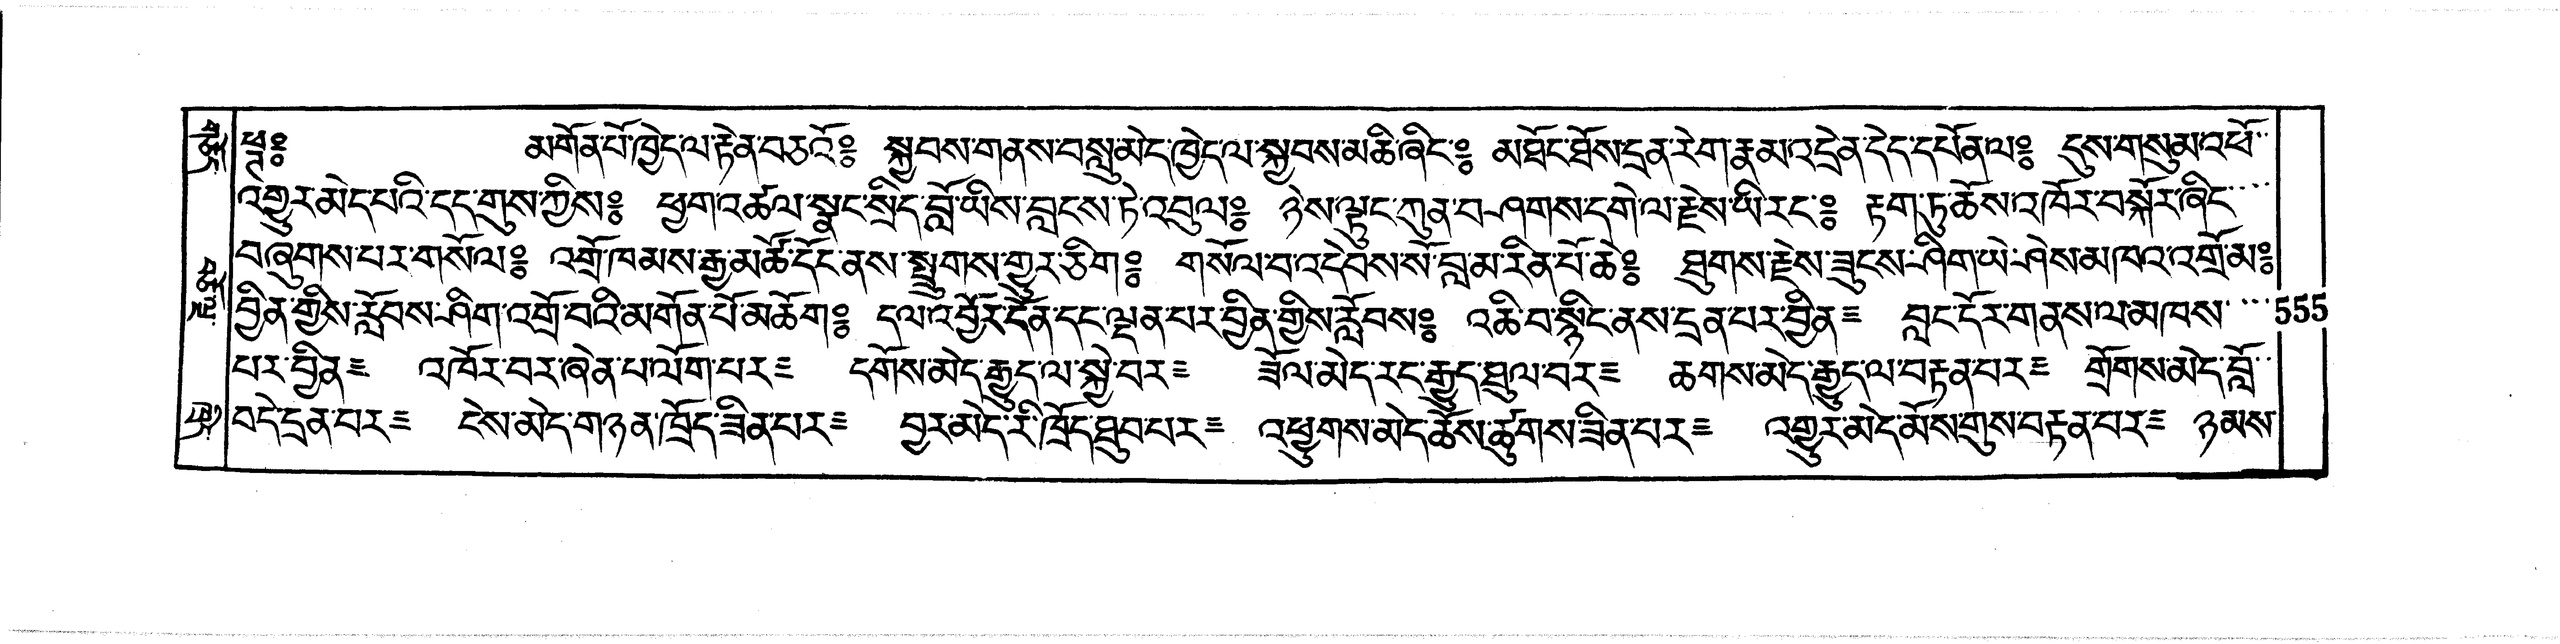 ཕཊ༔ མགོན་པོ་ཁྱེད་ལ་རྟེན་བཅའོ༔ སྐྱབས་གནས་བསླུ་མེད་ཁྱེད་ལ་སྐྱབས་མཆི་ཞིང་༔ མཐོང་ཐོས་དྲན་རེག་རྣམ་འདྲེན་དེད་དཔོན་ལ༔ དུས་གསུམ་འཕོ་
འགྱུར་མེད་པའི་དད་གུས་ཀྱིས༔ ཕྱག་འཚལ་སྣང་སྲིད་བློ་ཡིས་བླངས་ཏེ་འབུལ༔ ཉེས་ལྟུང་ཀུན་བཤགས་དགེ་ལ་རྗེས་ཡི་རང་༔ རྟག་ཏུ་ཆོས་འཁོར་བསྐོར་ཞིང་
བཞུགས་པར་གསོལ༔ འགྲོ་ཁམས་རྒྱ་མཚོ་དོང་ནས་སྤྲུགས་གྱུར་ཅིག༔ གསོལ་བ་འདེབས་སོ་བླ་མ་རིན་པོ་ཆེ༔ ཐུགས་རྗེས་ཟུངས་ཤིག་ཡེ་ཤེས་མཁའ་འགྲོ་མ༔
བྱིན་གྱིས་རློབས་ཤིག་འགྲོ་བའི་མགོན་པོ་མཆོག༔ དལ་འབྱོར་དོན་དང་ལྡན་པར་བྱིན་གྱིས་རློབས༔ འཆི་བ་སྙིང་ནས་དྲན་པར་བྱིན༔ བླང་དོར་གནས་ལ་མཁས་ 555
པར་བྱིན༔ འཁོར་བར་ཞེན་པ་ལོག་པར༔ དགོས་མེད་རྒྱུད་ལ་སྐྱེ་བར༔ ཟོལ་མེད་རང་རྒྱུད་ཐུལ་བར༔ ཆགས་མེད་རྒྱུད་ལ་བརྟན་པར༔ གྲོགས་མེད་བློ་
བདེ་དྲན་པར༔ ངེས་མེད་གཉན་ཁྲོད་ཟིན་པར༔ བྱར་མེད་རི་ཁྲོད་ཐུབ་པར༔ འཕྱུགས་མེད་ཆོས་ཚུགས་ཟིན་པར༔ འགྱུར་མེད་མོས་གུས་བརྟན་པར༔ ཉམས་